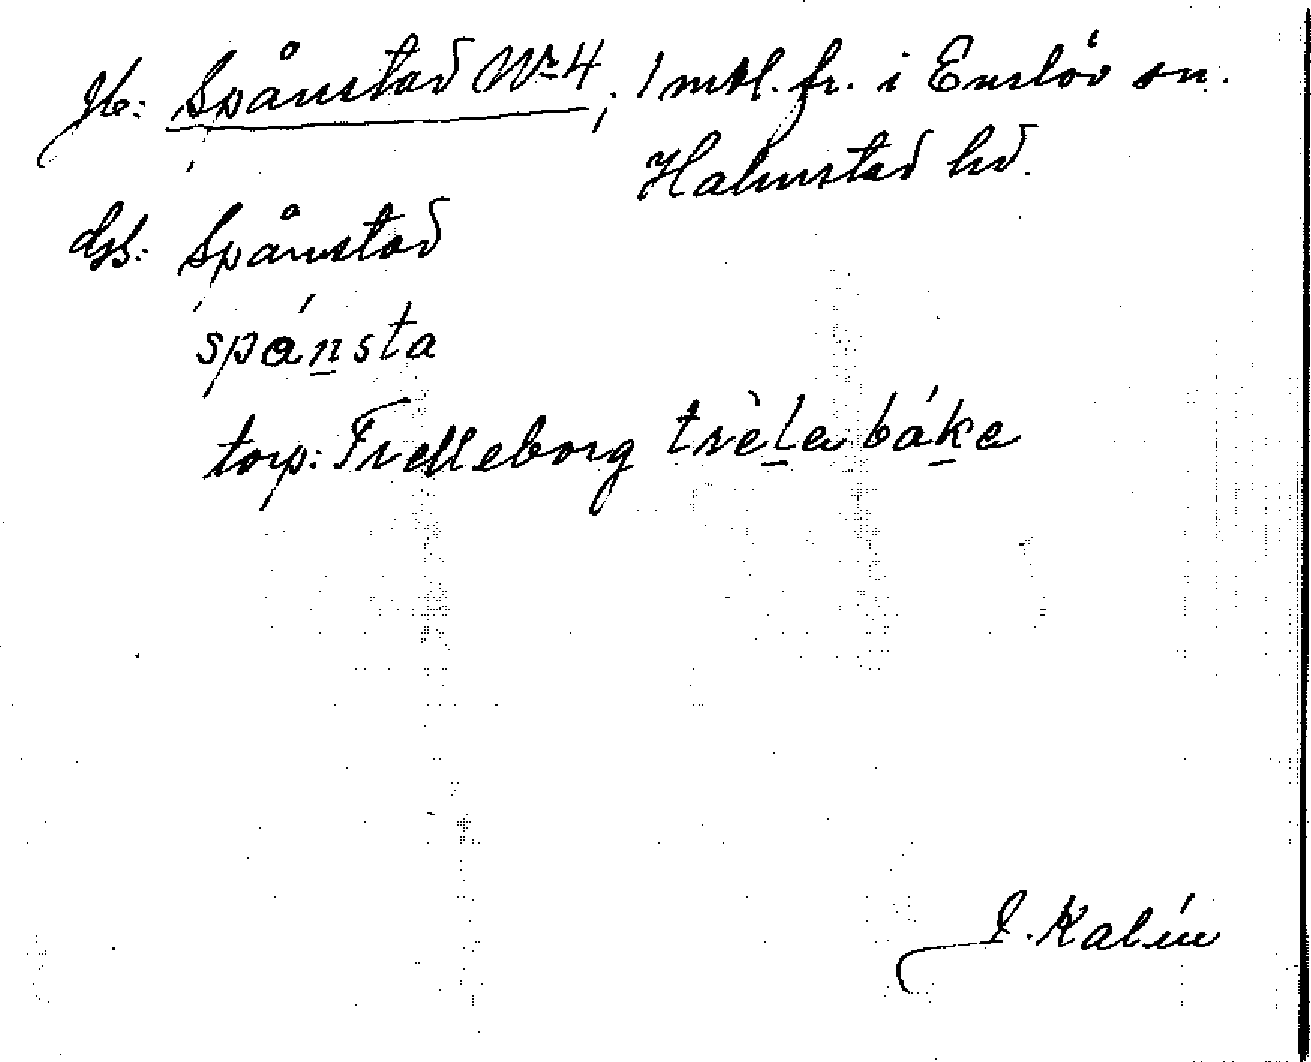 Jb: Spånstad Nr 4, 1 mtl. fr. i Enslöv sn.
Halmstad hd.
Gsk: Spånstad
spánsta
torp: Trelleborg trèlabáke
J. Kalén